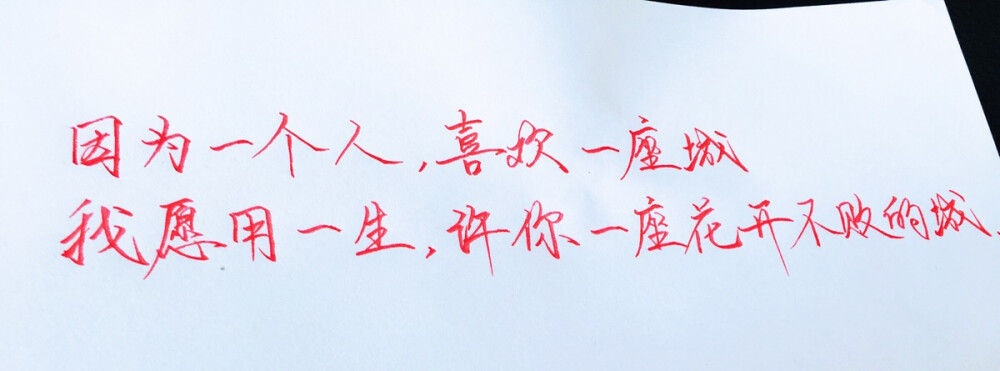 因为一个人,喜欢一座城
我愿用一生,许你一座花开不败的城.